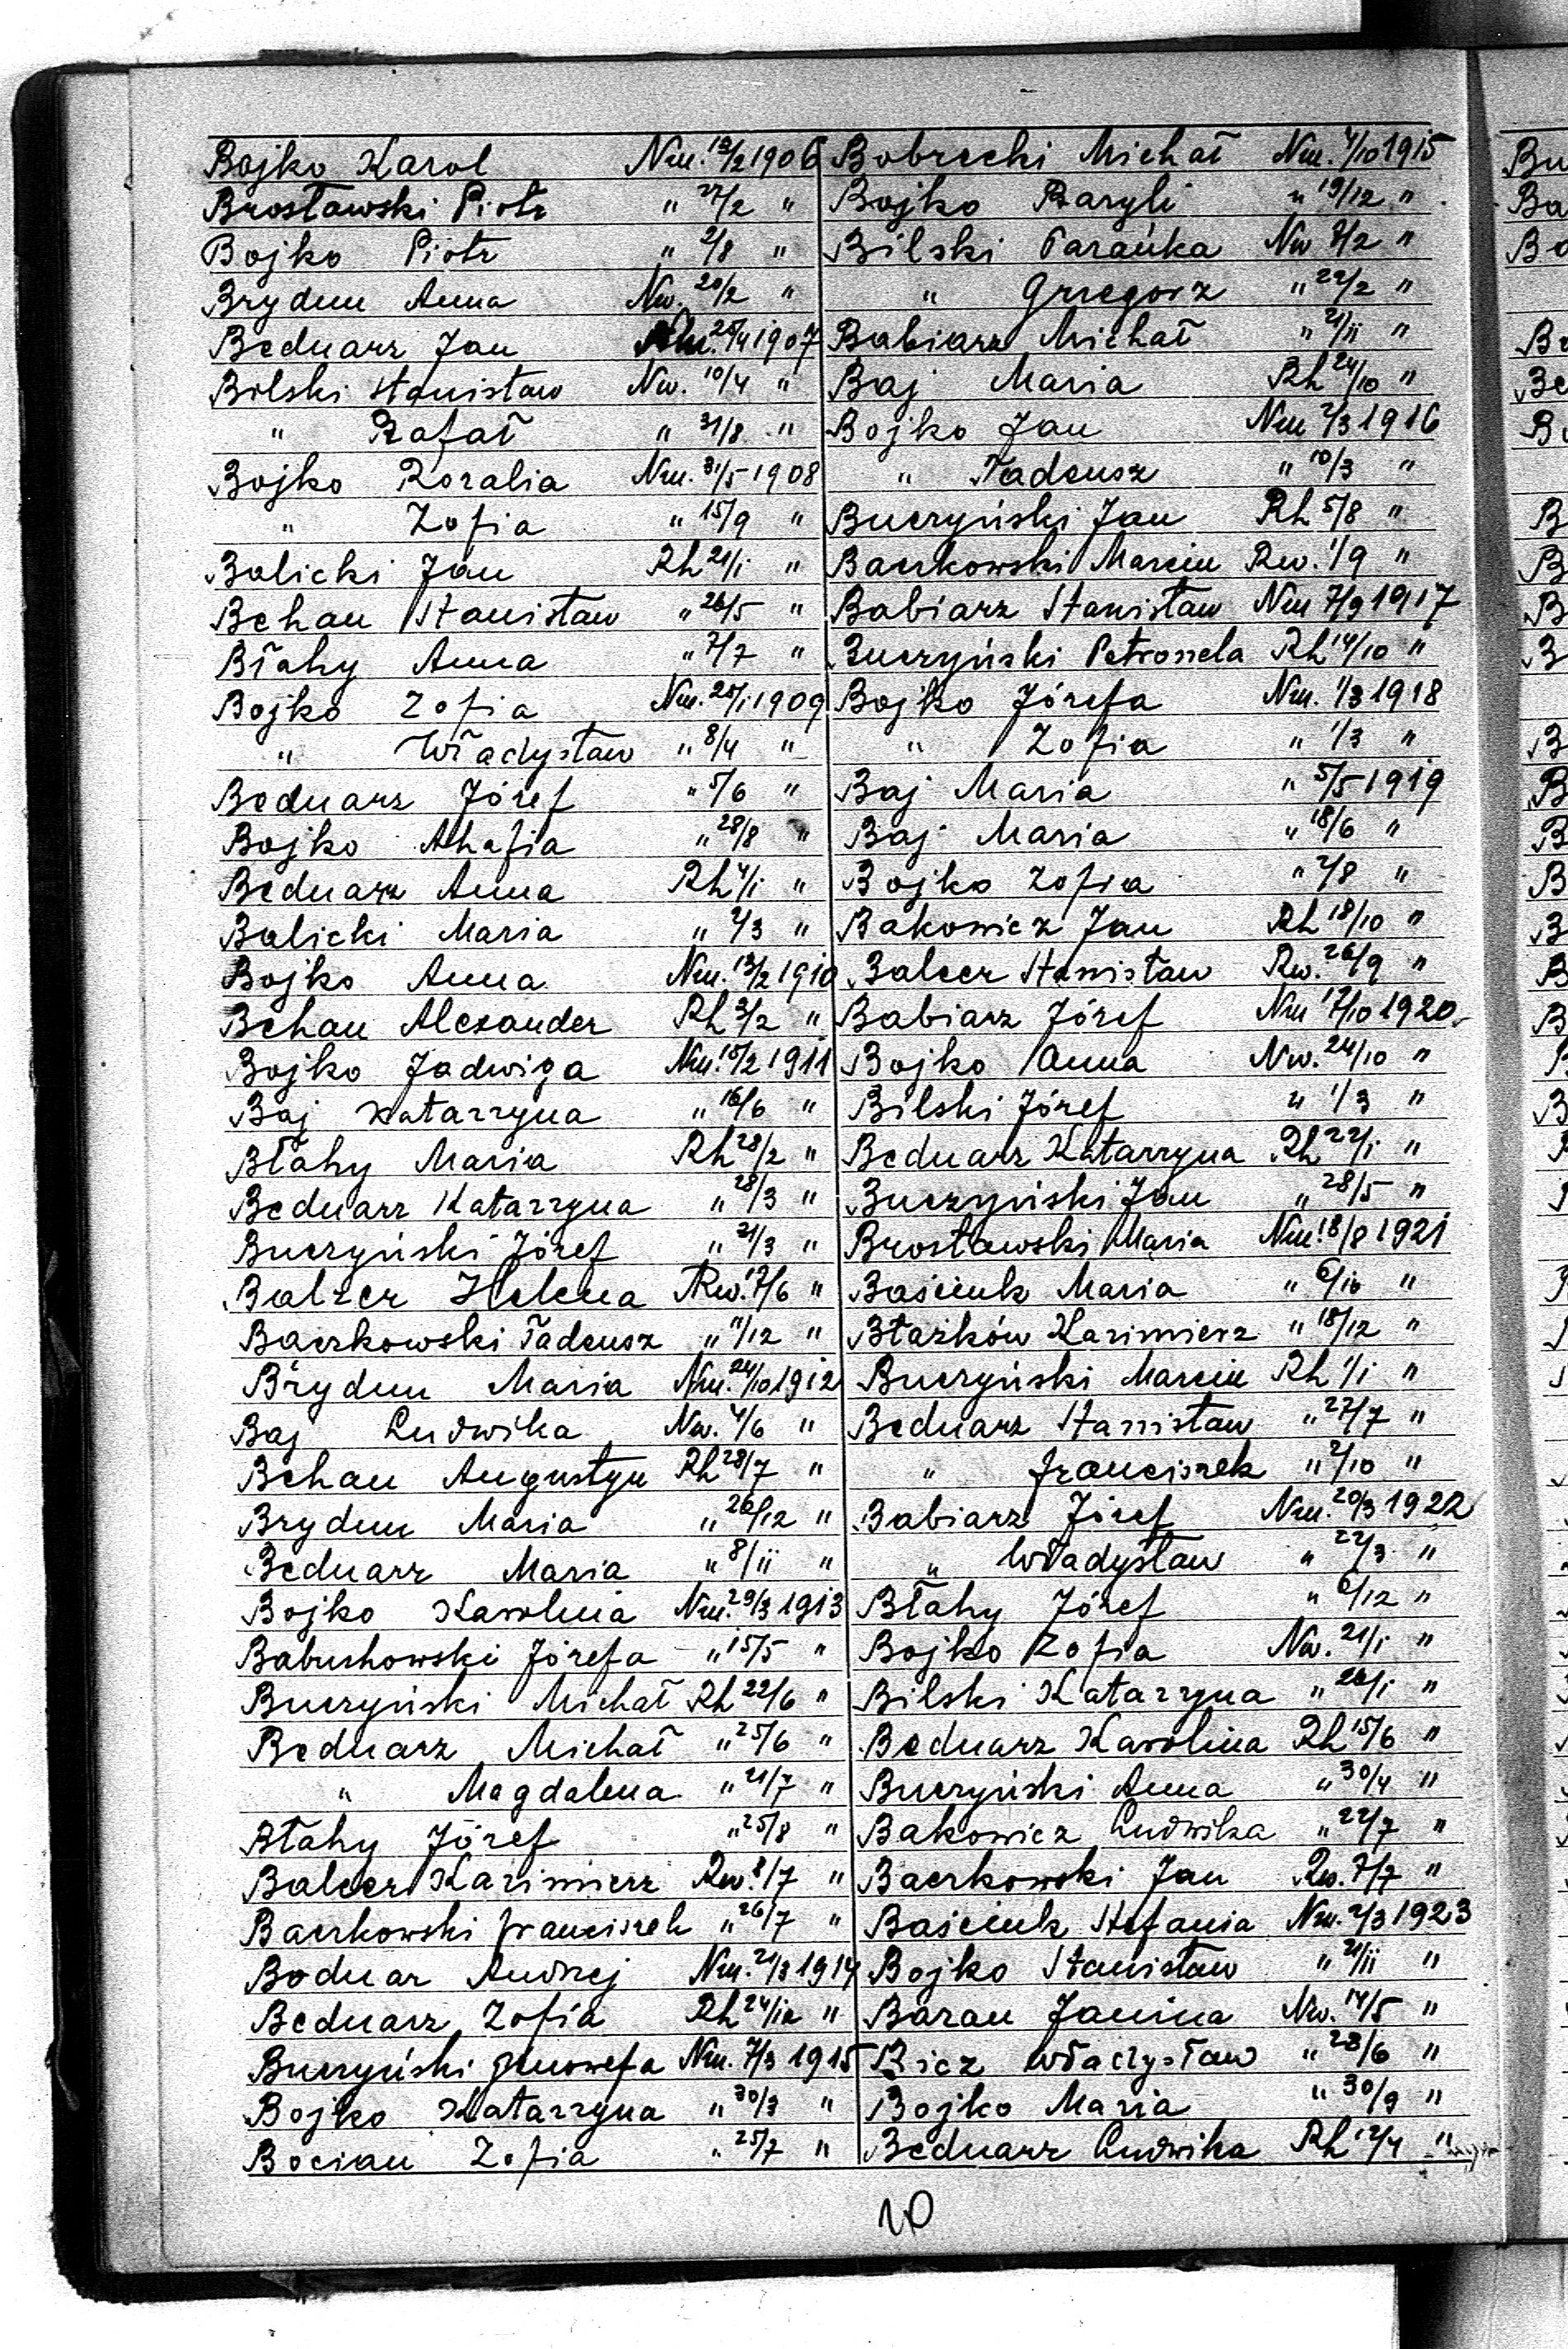 Bojko Karol Nm. 12/2 1906
Brosławski Piotr " 22/2 "
Bojko Piotr " 2/8 "
Brydun Anna Nw. 20/2 "
Bednarz Jan Nm. 25/4 1907
Bilski Stanisław Nw. 10/4 "
" Rafał " 31/8 "
Bojko Rozalia Nm. 31/5 1908
" Zofia " 15/9 "
Balicki Jan Rh 21/1 "
Behan Stanisław " 26/5 "
Błahy Anna " 7/7 "
Bojko Zofia Nm. 25/1 1909
" Władysław " 8/4 "
Bednarz Józef " 5/6 "
Bojko Ahafia " 28/8 "
Bednarz Anna Rh 4/1 "
Balicki Maria " 2/3 "
Bojko Anna Nm. 13/2 1910
Behan Alexander Rh 3/2 "
Bojko Jadwiga Nm. 15/2 1911
Baj Katarzyna " 16/6 "
Błahy Maria Rh 28/2 "
Bednarz Katarzyna " 28/3 "
Buczyński Józef " 31/3 "
Balzer Helena Rw. 17/6 "
Baczkowski Tadeusz " 11/12 "
Brydun Maria Nm. 24/10 1912
Baj Ludwika Nw. 4/6 "
Behan Augustyn Rh 28/7 "
Brydun Maria " 26/12 "
Bednarz Maria " 8/11 "
Bojko Karolina Nm. 29/3 1913
Babushowski Józefa " 15/5 "
Buczyński Michał Rh 22/6 "
Bednarz Michał " 25/6 "
" Magdalena " 21/7 "
Błahy Józef " 25/8 "
Balcer Kazimierz Rw. 8/7 "
Baczkowski Franciszek " 26/7 "
Bodnar Andrzej Nm. 21/3 1914
Bednarz Zofia Rh 24/12 "
Buczyński Genowefa Nm. 7/3 1915
Bojko Katarzyna " 30/3 "
Bocian Zofia " 25/7 "
Bobrecki Michał Nm. 4/10 1915
Bojko Bazyli " 19/12 "
Bilski Parańka Nw 7/2 "
" Grzegorz " 22/2 "
Babiarz Michał " 21/11 "
Baj Maria Rh 24/10 "
Bojko Jan Nm 2/3 1916
" Tadeusz " 10/3 "
Buczyński Jan Rh 5/8 "
Baczkowski Marcin Rw. 1/9 "
Babiarz Stanisław Nm 7/9 1917
Buczyński Petronela Rh 14/10 "
Bojko Józefa Nm. 1/3 1918
" Zofia " 1/3 "
Baj Maria " 5/5 1919
Baj Maria " 18/6 "
Bojko Zofia " 2/8 "
Bakowicz Jan Rh 18/10 "
Balcer Stanisław Rw. 26/9 "
Babiarz Józef Nm 17/10 1920
Bojko Anna Nw. 24/10 "
Bilski Józef " 1/3 "
Bednarz Katarzyna Rh 22/1 "
Buczyński Jan " 28/5 "
Brosławski Maria Nm. 18/8 1921
Baściuk Maria " 6/10 "
Błażków Kazimierz " 18/12 "
Buczyński Marcin Rh 1/1 "
Bednarz Stanisław " 22/7 "
" Franciszek " 2/10 "
Babiarz Józef Nm. 20/3 1922
" Władysław " 22/3 "
Błahy Józef " 6/12 "
Bojko Zofia Nw. 21/1 "
Bilski Katarzyna " 26/1 "
Bednarz Karolina Rh 15/6 "
Buczyński Anna " 30/4 "
Bakowicz Ludwika " 22/7 "
Baczkowski Jan Rw. 7/7 "
Baściuk Stefania Nm. 2/3 1923
Bojko Stanisław " 21/11 "
Baran Janina Nw. 14/5 "
Bicz Władysław " 28/6 "
Bojko Maria " 30/9 "
Bednarz Ludwika Rh 12/4 "
20